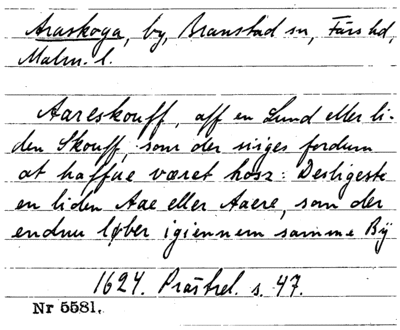 Araskoga, by, Branstad sn, Färs hd,
Malm. l.
Aareskouff, aff en Lund eller li-
den Skouff, som der siiges fordum
at haffue været hosz: Desligeste
en liden Aae eller Aaere, som der
endnu løber igiennem samme By
1624. Prästrel. s. 47.
Nr 5581.